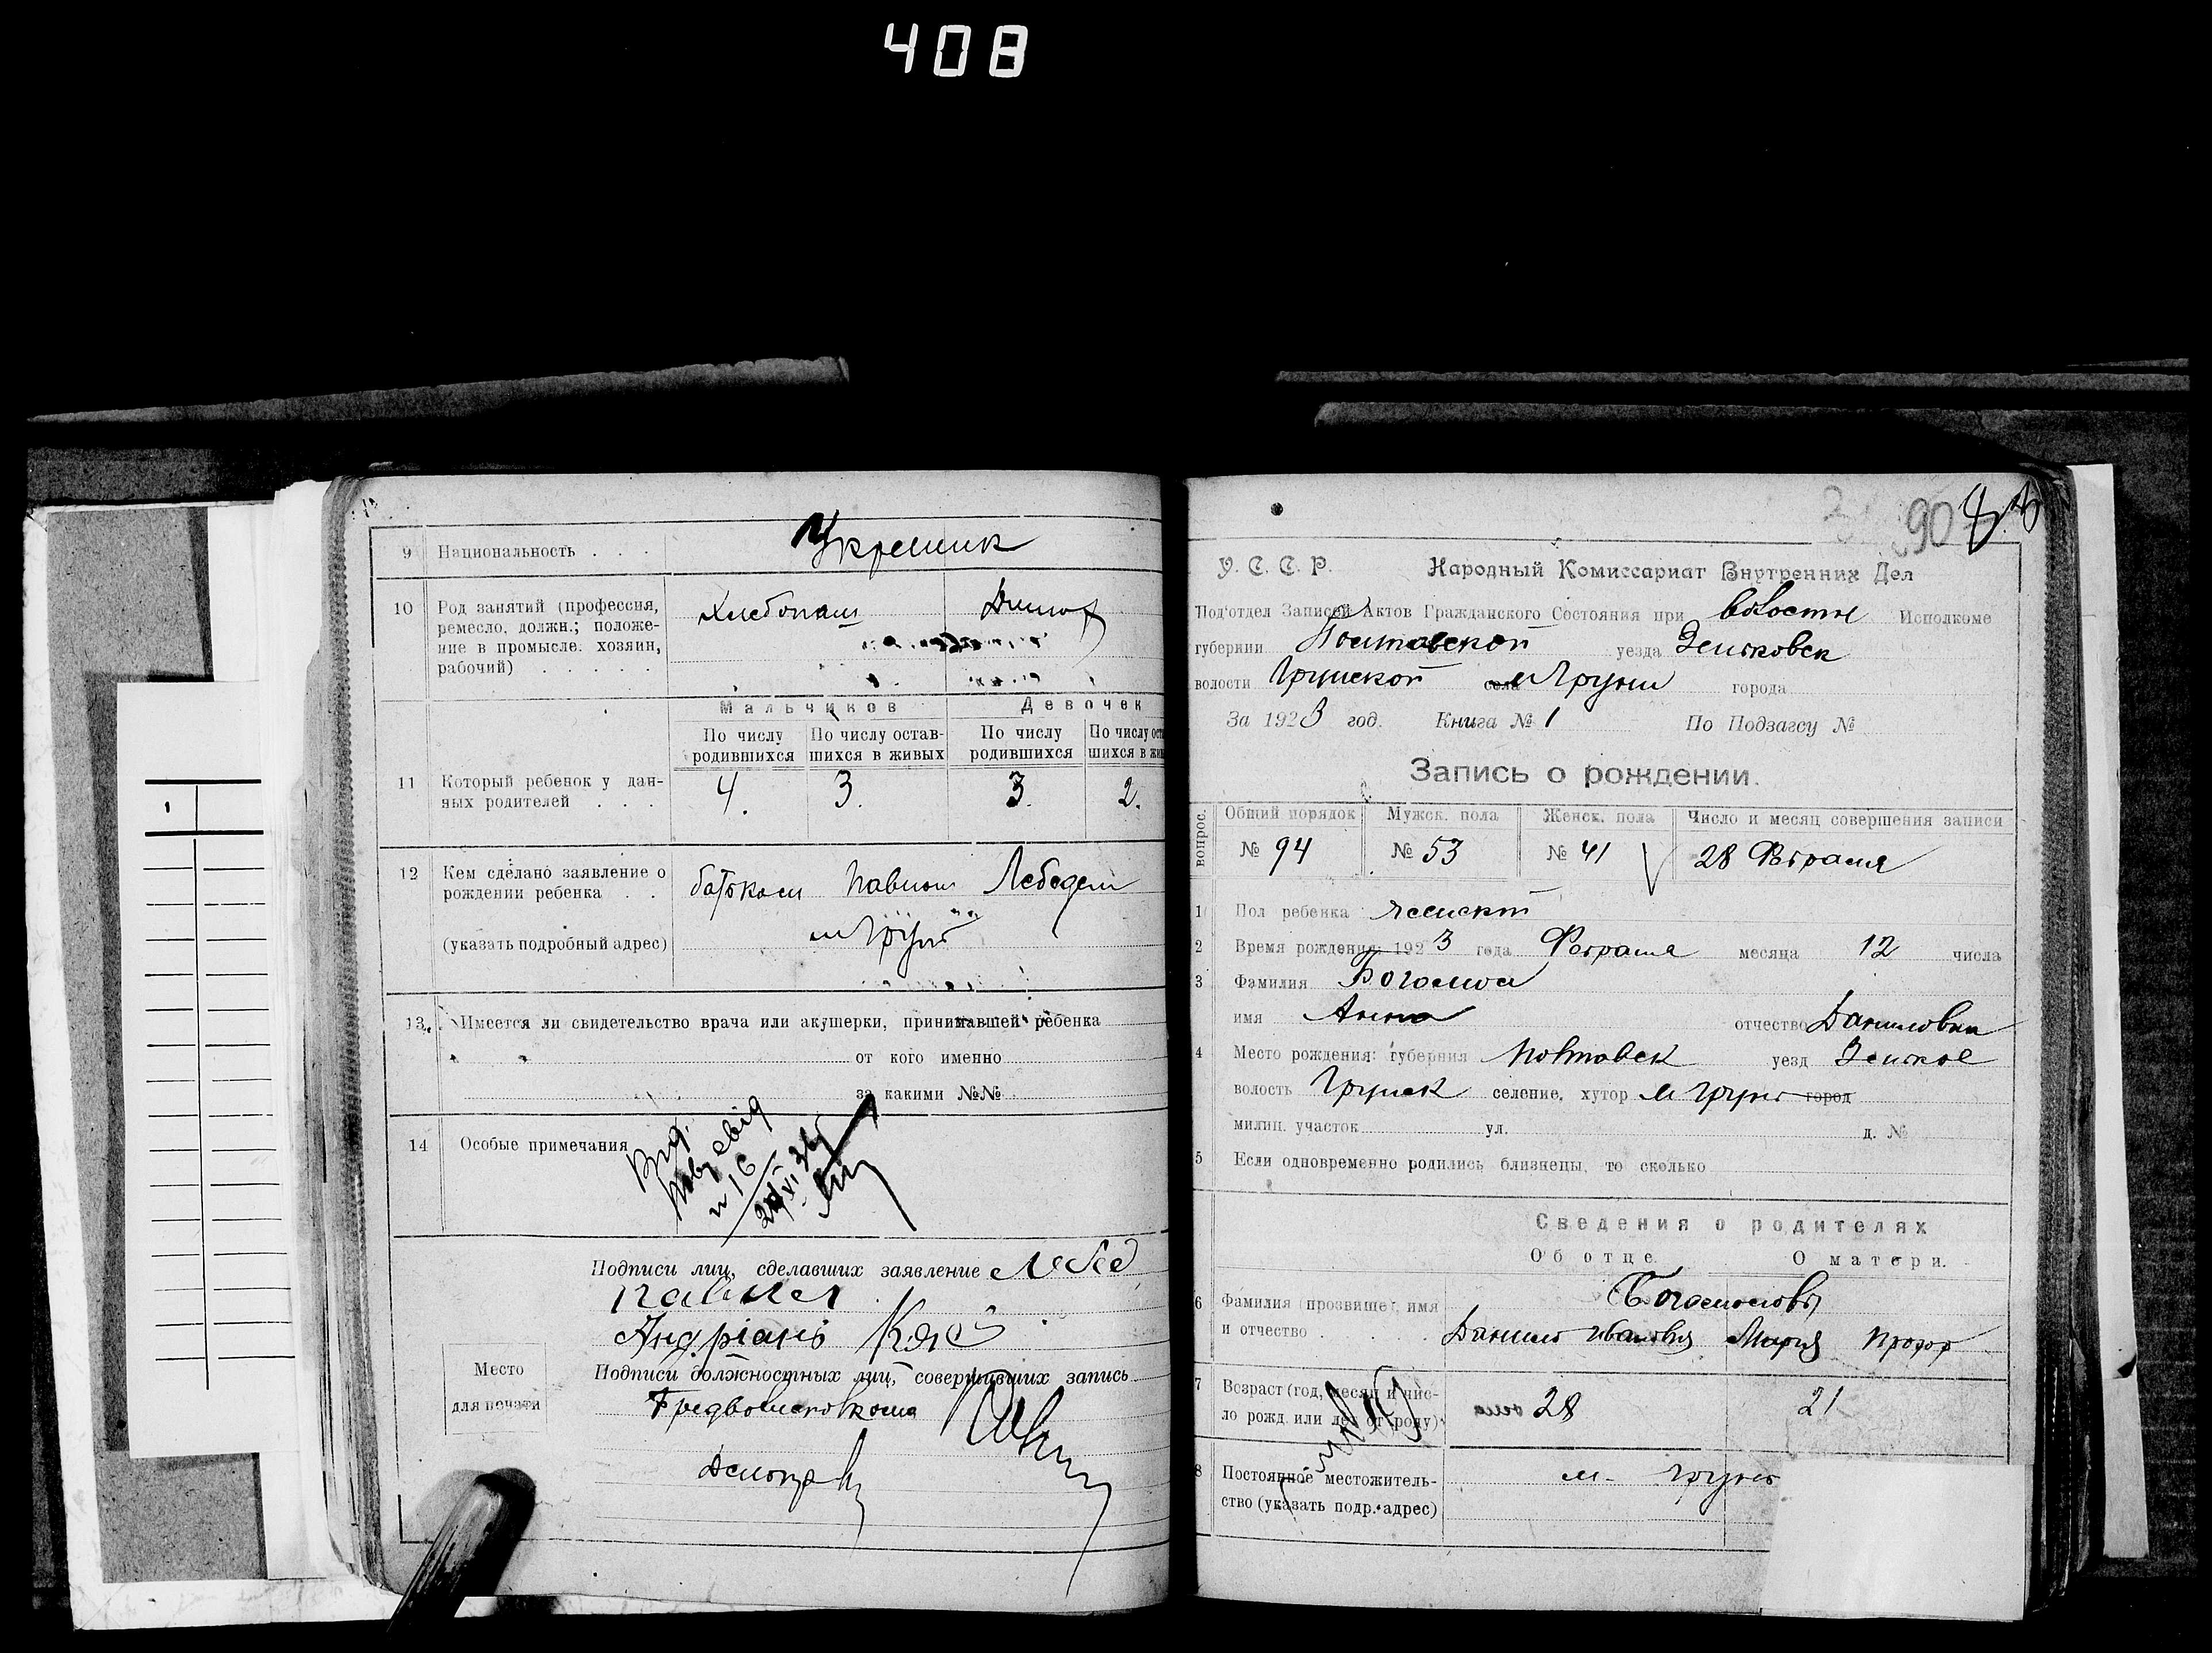 408
9 Национальность . . . Украинск
10 Род занятий (профессия, ремесло, должн.; положение в промысле. хозяин, рабочий) . . . . Хлебопаш
11 Который ребенок у данных родителей . . .
Мальчиков Девочек
По числу родившихся По числу оставшихся в живых По числу родившихся По числу ост шихся в жив
4. 3. 3. 2.
12 Кем сделано заявление о рождении ребенка . . батьком Павлом Лебедем
(указать подробный адрес) м Грунь
13. Имеется ли свидетельство врача или акушерки, принимавшей ребенка
от кого именно
за какими №№
14 Особые примечания
Вид.
№ 16
Подписи лиц, сделавших заявление Лебед
Павлел
Андріанъ
Место для печати
Подписи должностных лиц, совершивших запись
Предволисполкома
90
У. С. С. Р. Народный Комиссариат Внутренних Дел
Под'отдел Записей Актов Гражданского Состояния при волостн Исполкоме
губернии Полтавской уезда Зеньковск
волости Грунской села м Груни города
За 1923 год. Книга № 1 По Подзагсу №
Запись о рождении.
вопрос. Общий порядок Мужск. пола Женск. пола Число и месяц совершения записи
№ 94 № 53 № 41 28 Февраля
1 Пол ребенка женский
2 Время рождения: 1923 года Февраля месяца 12 числа
3 Фамилия
имя Анна отчество Даниловна
4 Место рождения: губерния Полтавск уезд Зеньков
волость Грунск селение, хутор м Грунь город
милиц. участок ул. д. №
5 Если одновременно родились близнецы, то сколько
Сведения о родителях
Об отце. О матери.
6 Фамилия (прозвище), имя и отчество . . . . Данило Иванович Мария Прокоф
7 Возраст (год, месяц и число рожд. или лет от роду) 28 21
8 Постоянное местожительство (указать подр. адрес) м. Грунь